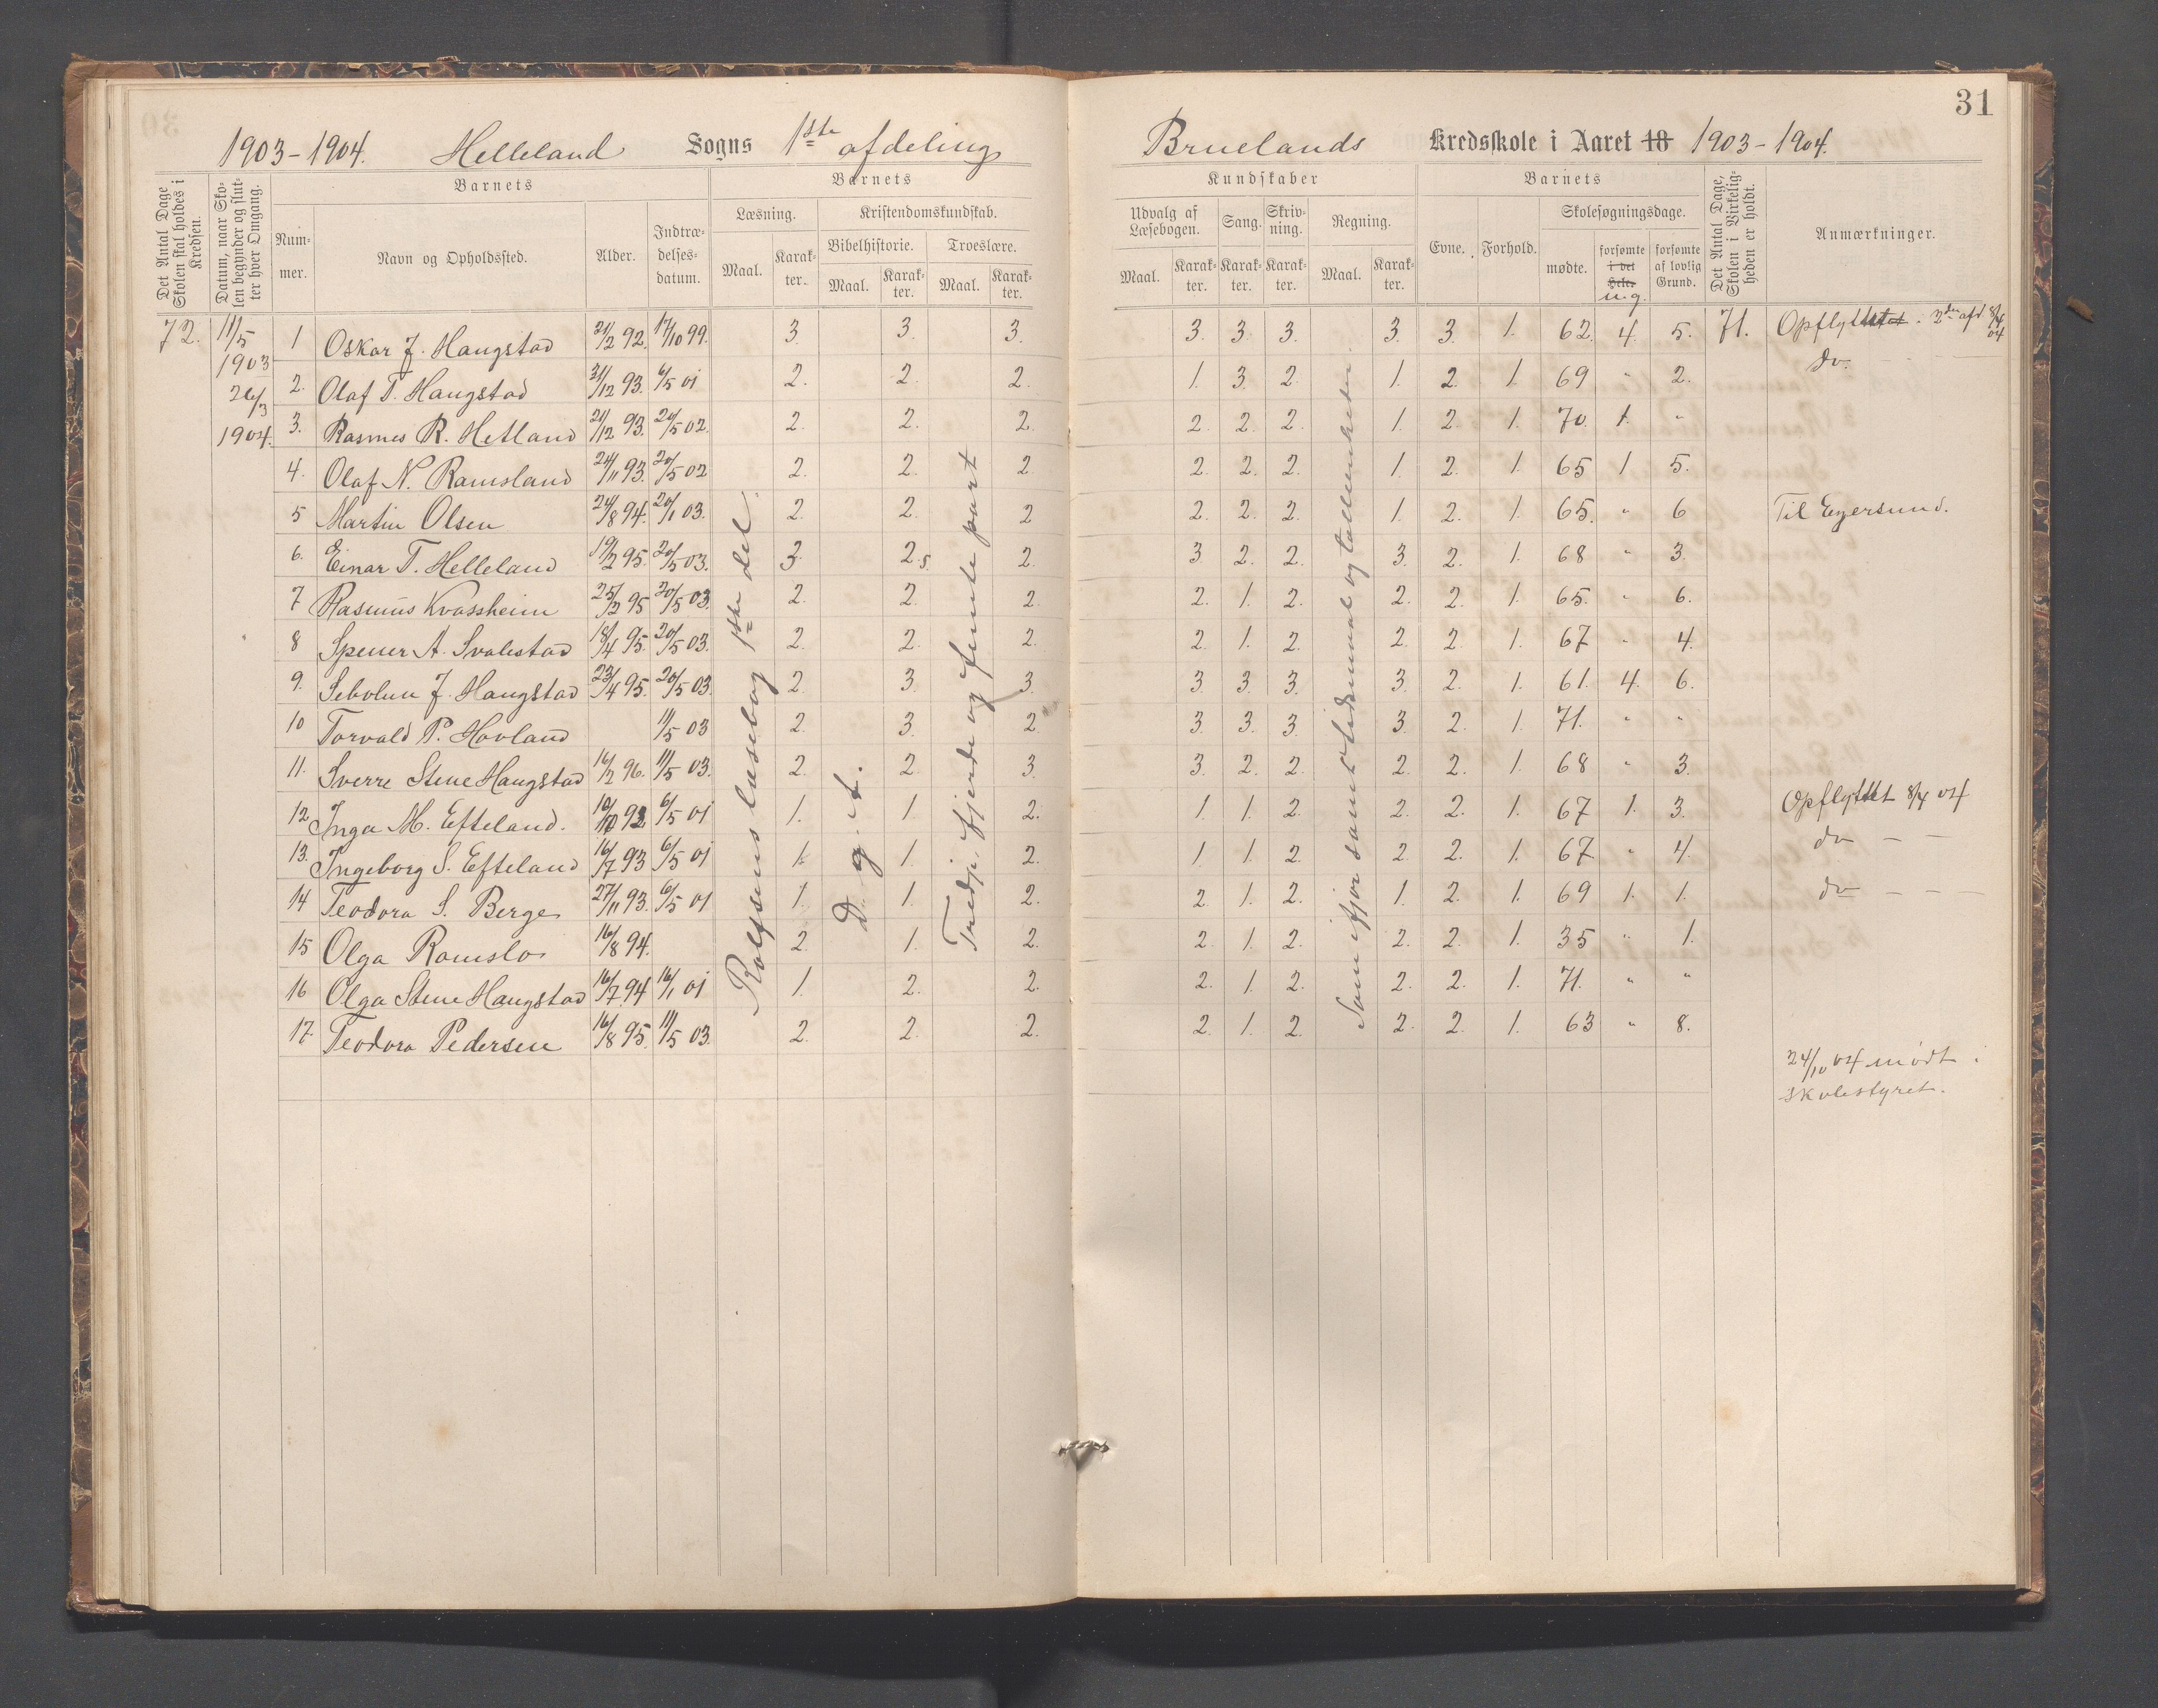 31
1903-1904. Helleland Sogns 1ste afdeling Bruelands Kredsskole i Aaret 18 1903-1904.
Det Antal Dage Skolen skal holdes i Kredsen.
Datum, naar Skolen begynder og slutter hver Omgang.
Barnets
Nummer.
Navn og Opholdssted.
Alder.
Indtrædelsesdatum.
Barnets
Læsning.
Maal. Karakter.
Kristendomskundskab.
Bibelhistorie.
Maal. Karakter.
Troeslære.
Maal. Karakter.
Kundskaber
Udvalg af Læsebogen.
Maal. Karakter.
Sang.
Karakter.
Skrivning.
Karakter.
Regning.
Maal. Karakter.
Barnets
Evne. Forhold.
Skolesøgningsdage.
mødte.
forsømte i det Hele. u.g.
forsømte af lovlig Grund.
Det Antal Dage, Skolen i Virkeligheden er holdt.
Anmærkninger.
72. 11/5 1903 26/3 1904.
1 Oskar J. Haugstad 21/2 92. 17/10 99. 3. 3. 3. 3. 3. 3. 3. 3. 1. 62. 4. 5. 71. Opflyttet 2den afd 8/4 04
2. Olaf T. Haugstad 31/12 93. 6/5 01 2. 2. 2. 1. 3. 2. 1. 2. 1. 69 " 2. do. - -
3. Rasmus R. Hetland 21/12 93. 20/5 02. 2. 2. 2. 2. 2. 2. 1. 2. 1. 70. 1. "
4. Olaf N. Ramsland 24/11 93. 20/5 02 2. 2. 2. 2. 2. 2. 1. 2. 1. 65 1 5.
5 Martin Olsen 24/8 94. 20/1 03. 2. 2. 2 2. 2. 2. 1. 2. 1. 65. " 6 Til Egersund.
6. Einar T. Helleland 19/2 95. 20/5 03. 3. 2.5 2. 3 2. 2. 3. 2. 1. 68 " 3.
7 Rasmus Kvassheim 25/2 95 20/5 03. 2. 2. 2. 2. 1. 2. 2. 2. 1. 65. " 6.
8 Spener A. Svalestad 18/4 95. 20/5 03. 2. 2. 2. 2. 1. 2. 2. 2. 1. 67 " 4.
9. Sebolun J. Haugstad 23/4 95. 20/5 03. 2. 3. 3. 3. 3. 3. 3. 2. 1. 61. 4. 6.
10 Torvald P. Hovland 11/5 03 2. 3. 2. 3. 3. 3. 3. 2. 1. 71. " "
11. Sverre Stene Haugstad 16/2 96. 11/5 03. 2. 2. 3. 3. 2. 2. 2. 2. 1. 68 " 3.
12. Inga M. Efteland. 10/10 92 6/5 01 1. 1. 2. 1 1. 2. 2. 2. 1. 67 1. 3. Opflyttet 8/4 04
13. Ingeborg S. Efteland 16/7 93 6/5 01 1. 1. 2. 1 1. 2. 2. 2. 1. 67 " 4. do - -
14 Teodora S. Berge 27/11 93. 6/5 01 1. 1. 2. 2 1. 2. 1. 2. 1. 69 1. 1. do - - -
15 Olga Ramslo 16/8 94. 2. 1. 2. 2. 1. 2. 2. 2. 1. 35 " 1.
16 Olga Stene Haugstad 16/7 94 16/1 01 1. 2. 2. 2. 1. 2. 2. 2. 1. 71. " "
17. Teodora Pedersen 16/8 95. 11/5 03. 2. 2. 2. 2. 1. 2. 2. 2. 1. 63 " 8.
Rolfsens læsebog 1ste del.
D. g. t.
Tredje fjerde og femte part
Som ifjor samt tidsmaal og tallenheder
24/10 04 mødt i
skolestyret.